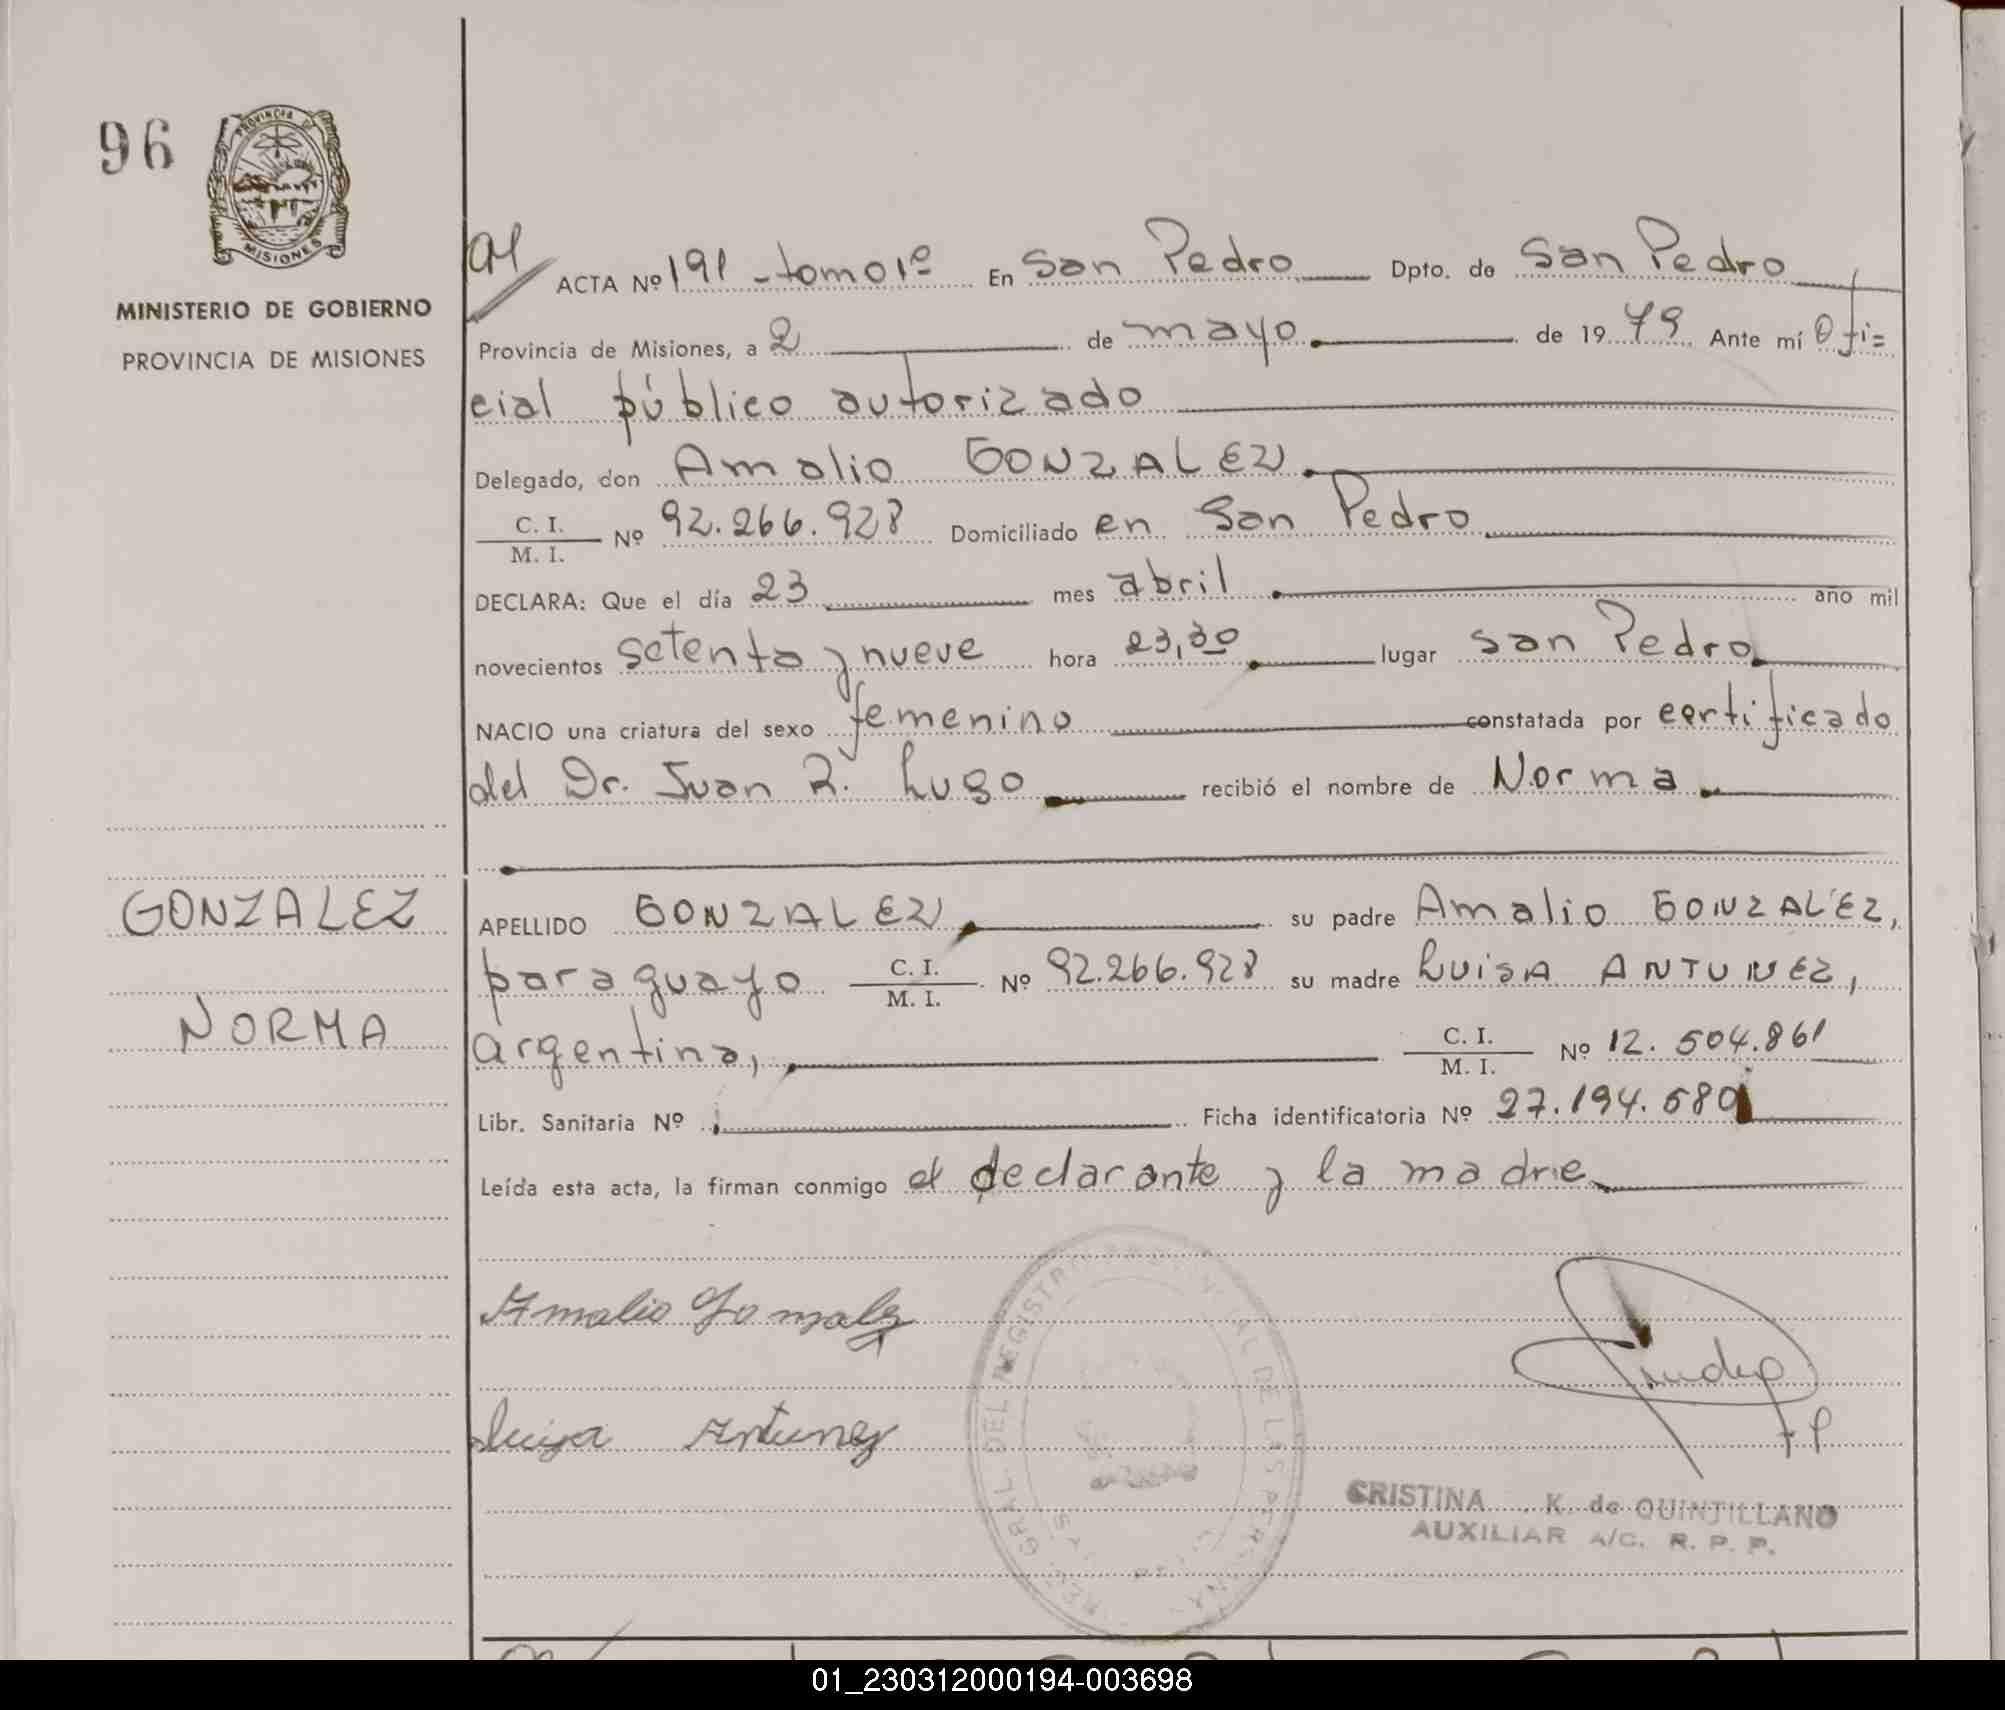 96
PROVINCIA DE
MISIONES
MINISTERIO DE GOBIERNO
PROVINCIA DE MISIONES
GONZALEZ
NORMA
ACTA Nº 191 - tomo 1º En San Pedro Dpto. de San Pedro
Provincia de Misiones, a 2 de mayo de 1979 Ante mí Ofi=
cial público autorizado
Delegado, don Amalio GONZALEZ
C. I.
M. I. Nº 92.266.928 Domiciliado en San Pedro
DECLARA: Que el día 23 mes abril año mil
novecientos setenta y nueve hora 23,30 lugar San Pedro
NACIO una criatura del sexo femenino constatada por certificado
del Dr. Juan R. Lugo recibió el nombre de Norma
APELLIDO GONZALEZ su padre Amalio GONZALEZ,
paraguayo C. I. M. I. Nº 92.266.928 su madre LUISA ANTUNEZ,
argentina, C. I. M. I. Nº 12.504.861
Libr. Sanitaria Nº Ficha identificatoria Nº 27.194.680
Leída esta acta, la firman conmigo el declarante y la madre
Amalio Gonzalez
Luisa Antunez
CRISTINA K. de QUINTILLANO
AUXILIAR A/C. R. P. P.
01_230312000194-003698